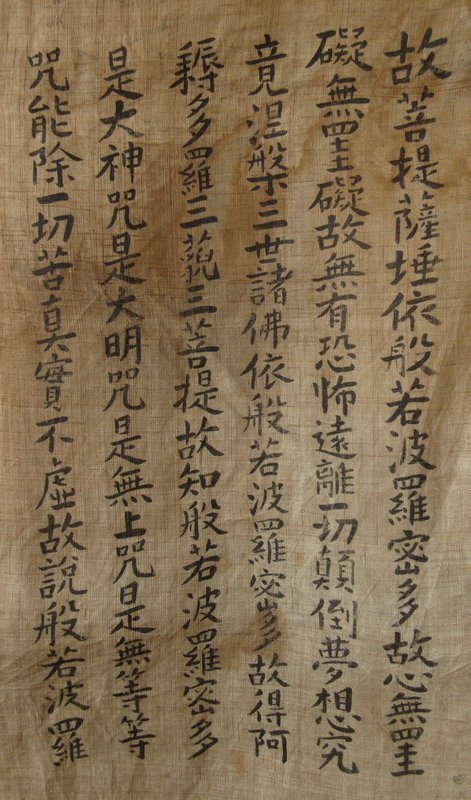 故菩提薩埵依般若波羅密多故心無罣
礙無罣礙故無有恐怖遠離一切顛倒夢想究
竟涅槃三世諸佛依般若波羅密多故得阿
耨多羅三藐三菩提故知般若波羅密多
是大神咒是大明咒是無上咒是無等等
咒能除一切苦真實不虛故說般若波羅